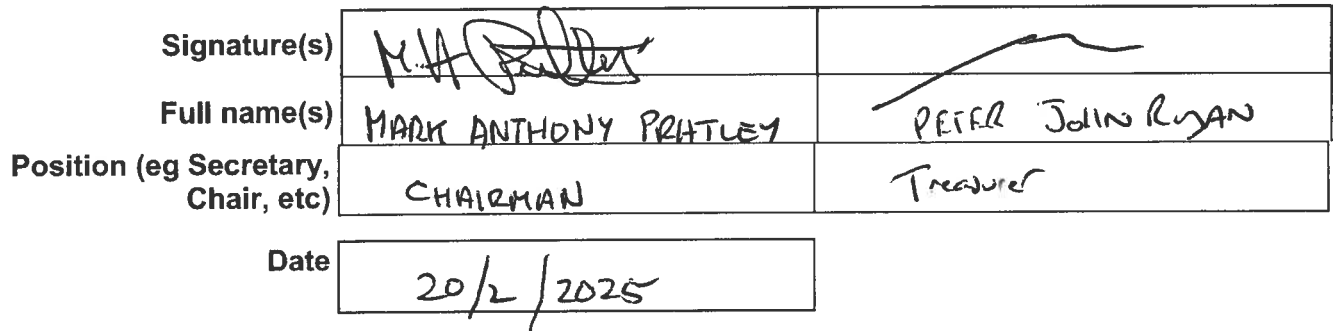 Signature(s) M.A Pratley
Full name(s) MARK ANTHONY PRATLEY PETER JOHN RYAN
Position (eg Secretary,
Chair, etc) CHAIRMAN Treasurer
Date 20/2/2025